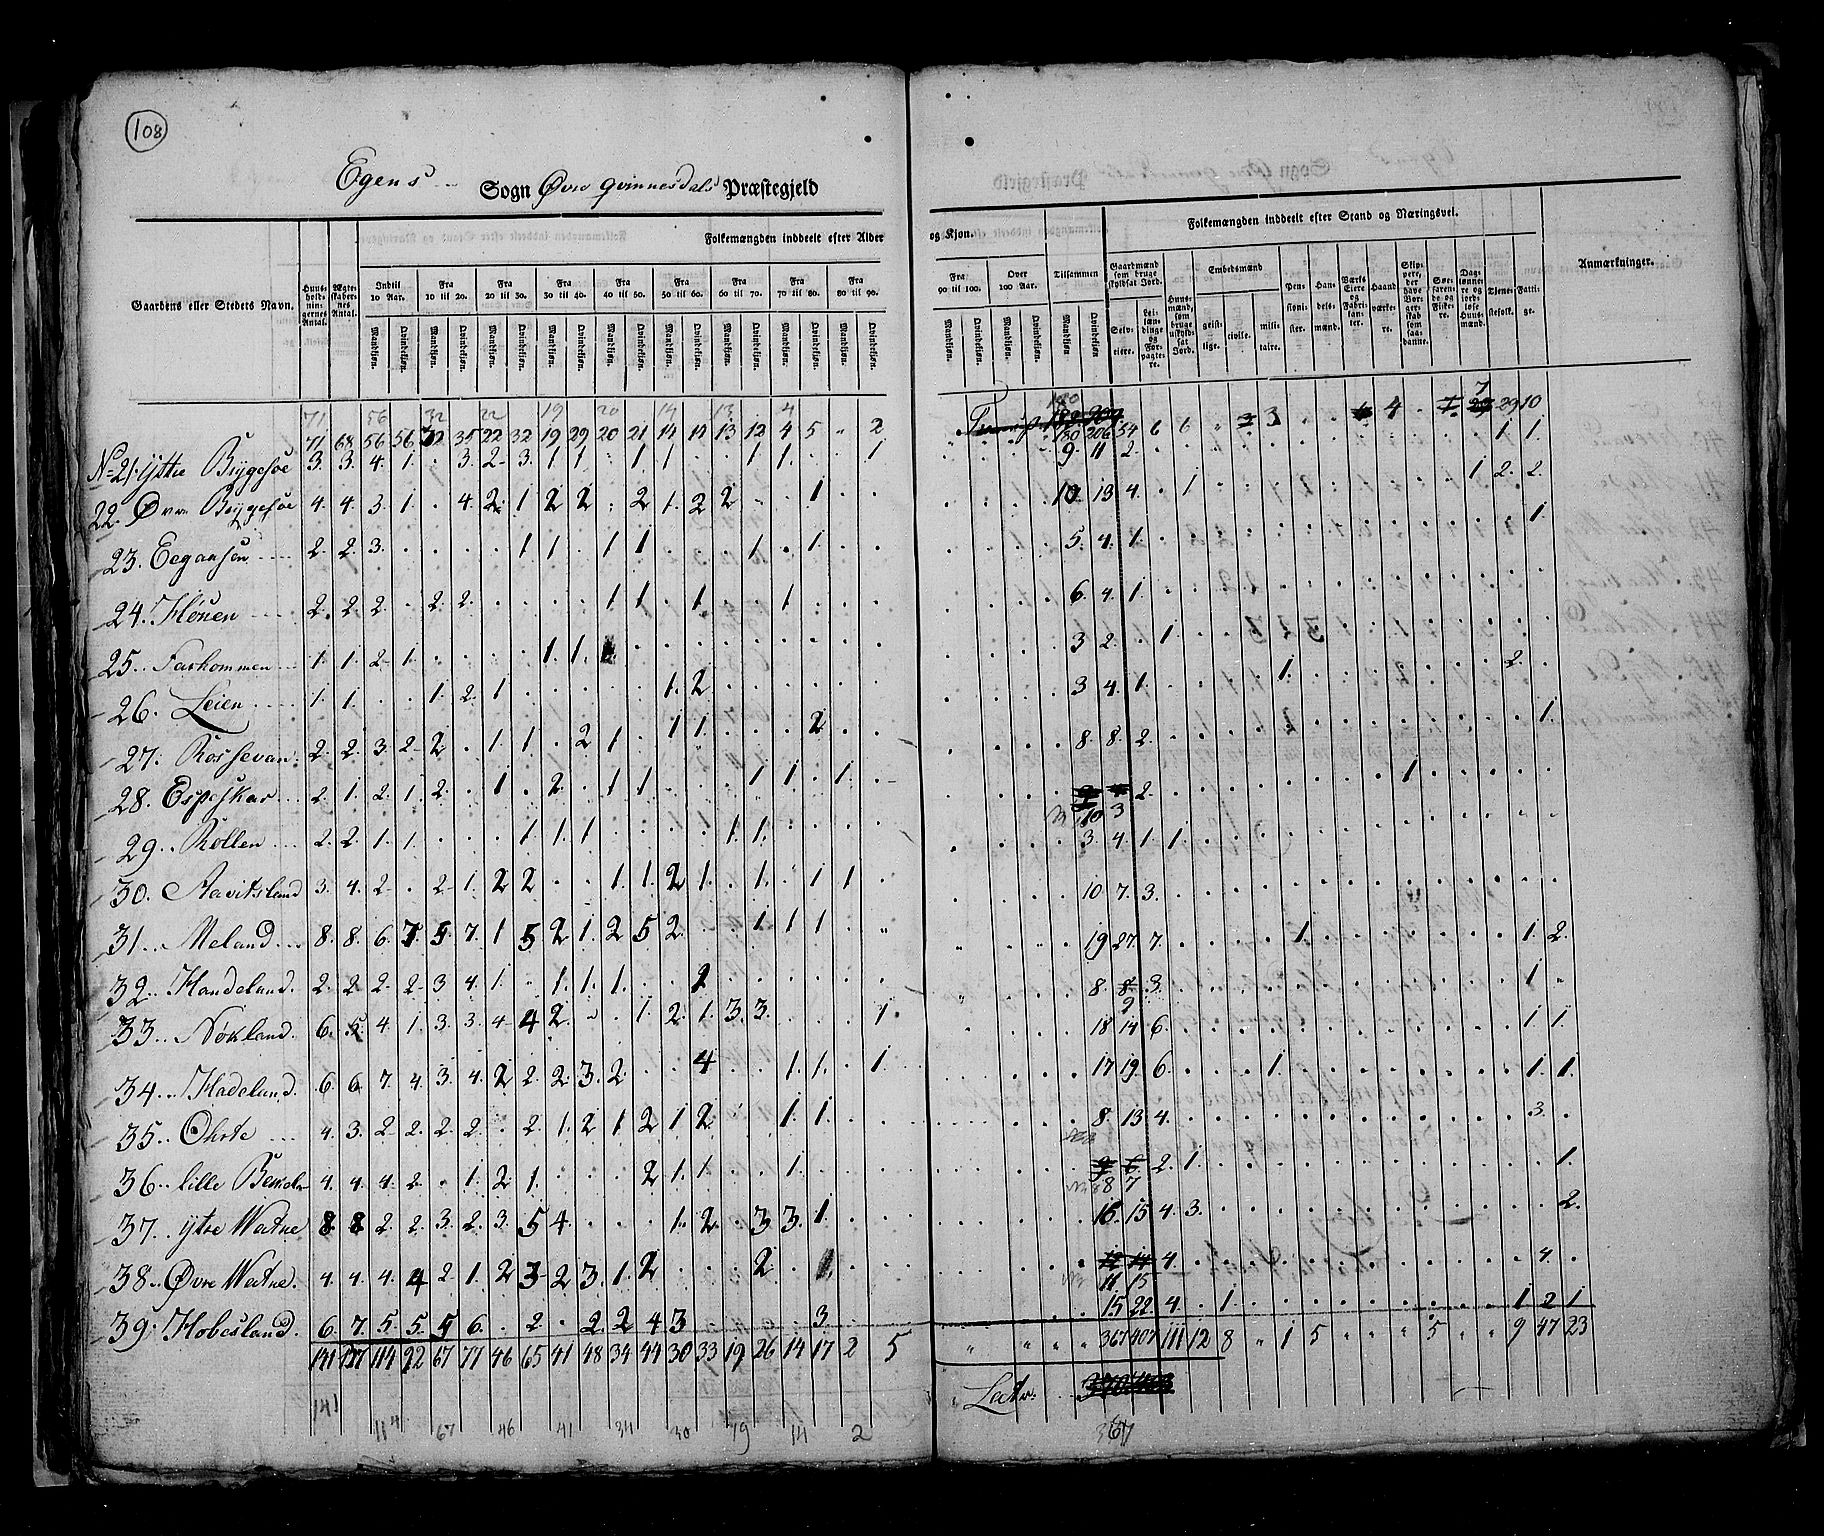 108
Egens Sogn Øvre Qvinnesdals Præstegjeld
Folkemængden inddeelt efter Alder og Kjøn.
Folkemængden inddeelt efter Stand og Næringsvei.
Gaardens eller Stedets Navn.
Huusholdningernes Antal.
Ægteskabernes Antal.
Indtil 10 Aar.
Fra 10 til 20.
Fra 20 til 30.
Fra 30 til 40.
Fra 40 til 50.
Fra 50 til 60.
Fra 60 til 70.
Fra 70 til 80.
Fra 80 til 90.
Fra 90 til 100.
Over 100 Aar.
Tilsammen
Mandkjøn. Qvindekjøn.
Gaardmænd som bruge skyldsat Jord.
Selveiere.
Leilændinge og Forpagtere.
Huusmænd, som bruge uskyldsat Jord.
Embedsmænd
geistlige.
civile.
militaire.
Pensionister.
Handelsmænd.
Værks Eiere og Fabrikanter.
Haandværkere.
Skippere, der have Borgerskab som saadanne.
Søefarende og Fiskere.
Daglønnere og jordløse Huusmænd.
Tjenestefolk.
Fattige.
Anmærkninger.
71 56 32 22 19 20 14 13 4
71 68 56 56 32 35 22 32 19 29 20 21 14 14 13 12 4 5 " 2 180 206 54 6 6 " 3 4 7 29 10
No 21. Ystre Bygesøe 3. 3. 4. 1. . 3. 2. 3. 1. 1. . 1. 1. . . 1. 1. . . 1. 9. 11 2. 1. 1.
22. Øvre Bygesøe 4. 4. 3. 1. . 4. 2. 1. 2 2. . 2. 1. 2 2 . . 1. . . 10. 13 4. . 1 1. 2. 2.
23. Eegansøn 2. 2. 3. . . . . 1. 1. . 1. 1. . . . 1. . 1. . . 5. 4. 1. 1.
24. Hønen 2. 2. 2. . 2. 2. . . . . 1. 1. . 1. . . 1. . . . 6. 4. 1.
25. Farkommen 1. 1. 2. 1. . . . . 1. 1. 3 2. . 1.
26. Leien 1. 1. . . 1. 2. 1. . . . . . 1. 2. 3 4. 1. 1. 2.
27. Rossevan 2. 2. 3. 2. 2. . 1. 1. . 2 1. . 1. 1. . . . 2. . . 8. 8. 2. 1.
28. Espeskar 2. 1. 2. 1. 2. . 1. . 2. . 1. 1. . . . 1. 1. . 1. . 10 3 2. 1.
29. Rollen 2. 2. 1. 1. . . . 1. 1. 1. . . . . 1. 1. 3. 4. 1. 1.
30. Aavitsland 3. 4. 2. . 2. 1. 2 2. . . 1. 1. 2 1. . 1. . 1. 1. . 10. 7. 3.
31. Meland 8. 8. 6. 7. 5. 7. 1 5 2 1. 2 5 2. . . 1. 1. 1. . " 19 27. 7. 1. 1. 2.
32. Handeland. 2. 2. 2. 2. 3. 4. 1. . 1. 1. 1. . . 2 8. 9 3. 1.
33. Nøkland. 6. 5. 4. 1. 3. 3. 4. 4 2. . . 1. 2. 1. 3. 3. . . . 1. 18 14 6. 1. 1.
34. Hadeland. 6. 6. 7. 4. 3. 4. 2 2. 2. 3. 2. . . 4. . . 1. 1. . 1. 17 19. 6. 1. 1. 1.
35. Ohrte 4. 3. 2. 2. 2. 2. . 2. 1. 2 1. 2 1. 2. . . 1. 1. . . 8. 13 4. 3.
36. lille 4. 4. 4. 2. . 1. 2. 1. . . . 2 1. 1. . . 1. . . . 8 7 2. 1. 1.
37. ytre Watne 8 8 2. 2. 3. 2. 3. 5 4. . . . 1. 2. . 3 3. 1. . . 16. 15 4. 3. 2.
38. Øvre Watne. 4. 4. 4. 4 2. 1. 2 3 2 3. 1. 2 . . . 2. . 1. . . 11 15 4. 4.
39. Hobesland. 6. 7. 5. 5. 5 6. . 2. . 2. 2 4 3 . . . . 3. . . 15 22. 4. . 1. 1 2 1
141 137 114 92 67 77 46 65 41 48 34 44 30 33 19 26 14 17 2 5 367 407 111 12 8 " 1 5 " " " 5 " " 9 47 23
Latr.
141 114 67 46 41 34 30 19 14 2 367